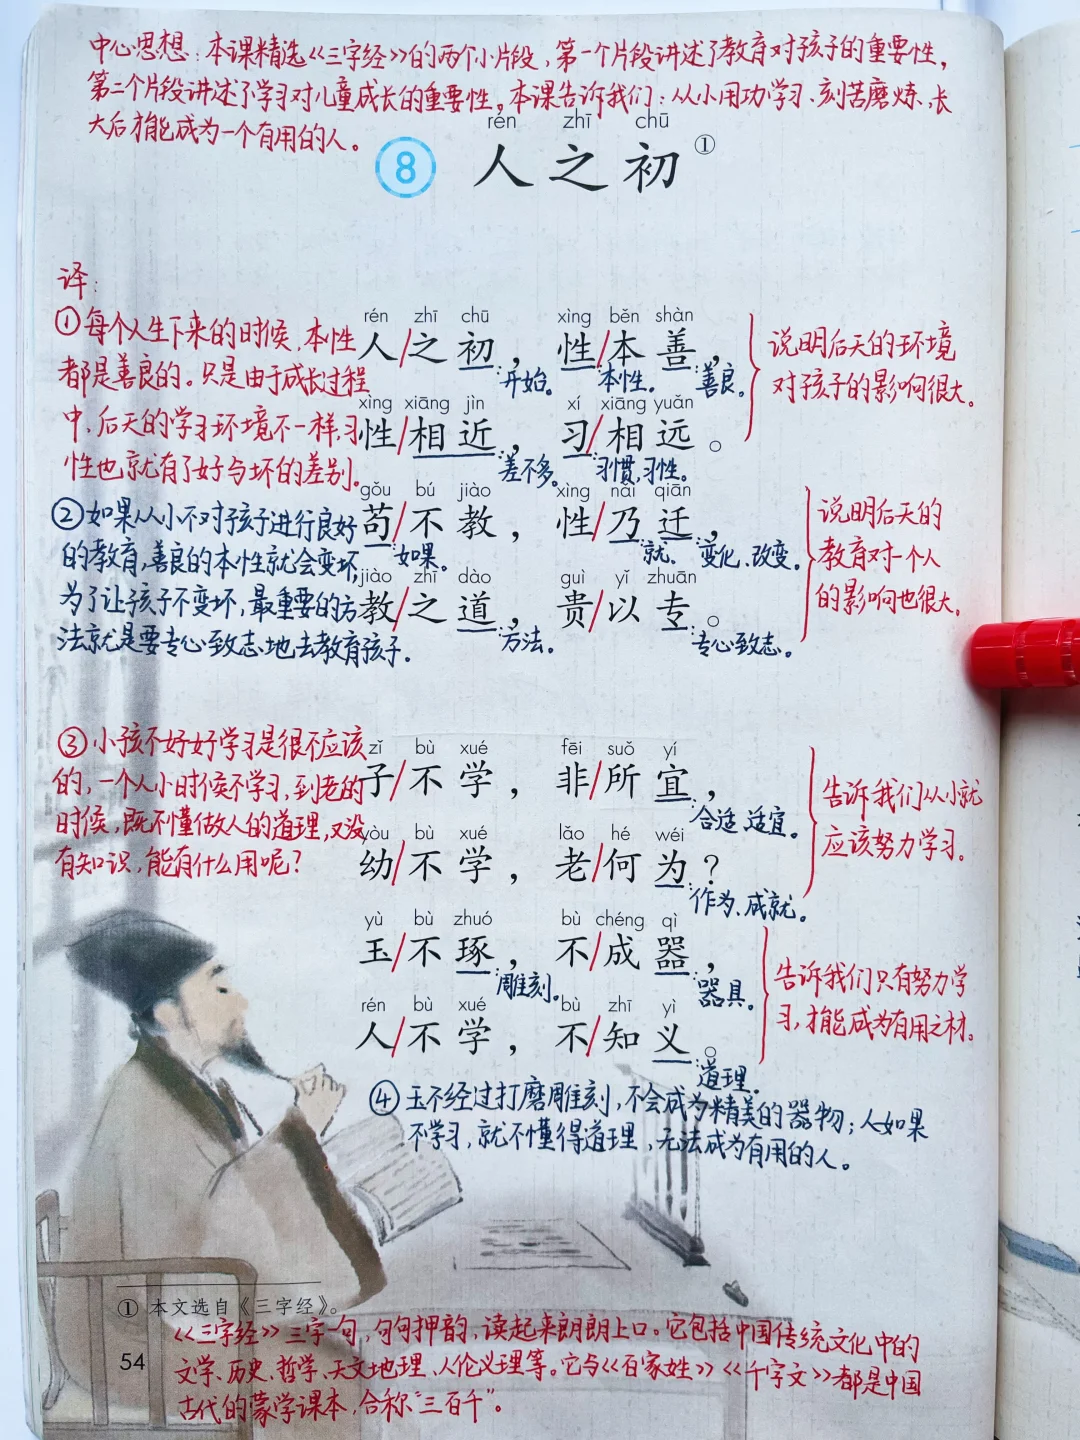 中心思想:本课精选《三字经》的两个小片段,第一个片段讲述了教育对孩子的重要性,
第二个片段讲述了学习对儿童成长的重要性。本课告诉我们:从小用功学习、刻苦磨炼、长
大后才能成为一个有用的人。
rén zhī chū
8 人之初①
译:
①每个人生下来的时候,本性
都是善良的。只是由于成长过程
中,后天的学习环境不一样,习
性也就有了好与坏的差别。
②如果从小不对孩子进行良好
的教育,善良的本性就会变坏,
为了让孩子不变坏,最重要的方
法就是要专心致志地去教育孩子.
rén zhī chū xìng běn shàn
人/之初,性/本善,
:开始。 :本性。 :善良。
xìng xiāng jìn xí xiāng yuǎn
性/相近,习/相远。
:差不多。 :习惯,习性。
说明后天的环境
对孩子的影响很大。
gǒu bú jiào xìng nǎi qiān
苟/不教,性/乃迁,
:如果。 :就、 :变化、改变。
jiào zhī dào guì yǐ zhuān
教/之道,贵/以专。
:方法。 :专心致志。
说明后天的
教育对一个人
的影响也很大。
③小孩不好好学习是很不应该
的,一个人小时候不学习,到老的
时候,既不懂做人的道理,又没
有知识,能有什么用呢?
zǐ bù xué fēi suǒ yí
子/不学,非/所宜,
:合适、适宜。
yòu bù xué lǎo hé wéi
幼/不学,老/何为?
:作为、成就。
告诉我们从小就
应该努力学习。
yù bù zhuó bù chéng qì
玉/不琢,不/成器,
:雕刻。 :器具。
rén bù xué bù zhī yì
人/不学,不/知义。
:道理.
告诉我们只有努力学
习,才能成为有用之材。
④玉不经过打磨雕刻,不会成为精美的器物;人如果
不学习,就不懂得道理,无法成为有用的人。
① 本文选自《三字经》。
《三字经》三字一句,句句押韵,读起来朗朗上口。它包括中国传统文化中的
文学、历史、哲学、天文地理、人伦义理等。它与《百家姓》《千字文》都是中国
古代的蒙学课本,合称"三百千"。
54